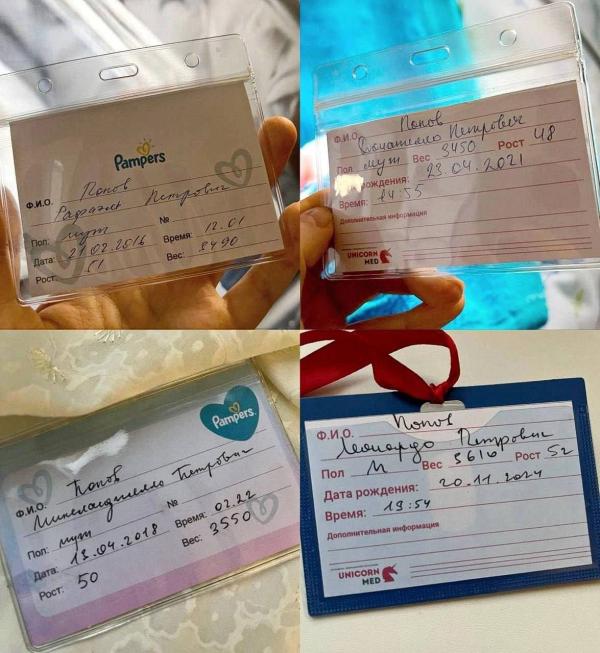 Pampers
Попов
Ф.И.О. Рафаэль Петрович
Пол: муж №
Дата: 21.02.2016 Время: 12.01
Рост: 51 Вес: 3490
Попов
Ф.И.О. Донателло Петрович
Пол муж Вес 3450 Рост 48
рождения: 23.04.2021
Время: 14:55
Дополнительная информация
UNICORN
MED
Pampers
Попов
Ф.И.О. Микеланджелло Петрович
Пол: муж №
Дата: 13.04.2018 Время: 02.22
Рост: 50 Вес: 3550
Попов
Ф.И.О. Леонардо Петрович
Пол М Вес 3610 Рост 52
Дата рождения: 20.11.2024
Время: 19:54
Дополнительная информация
UNICORN
MED